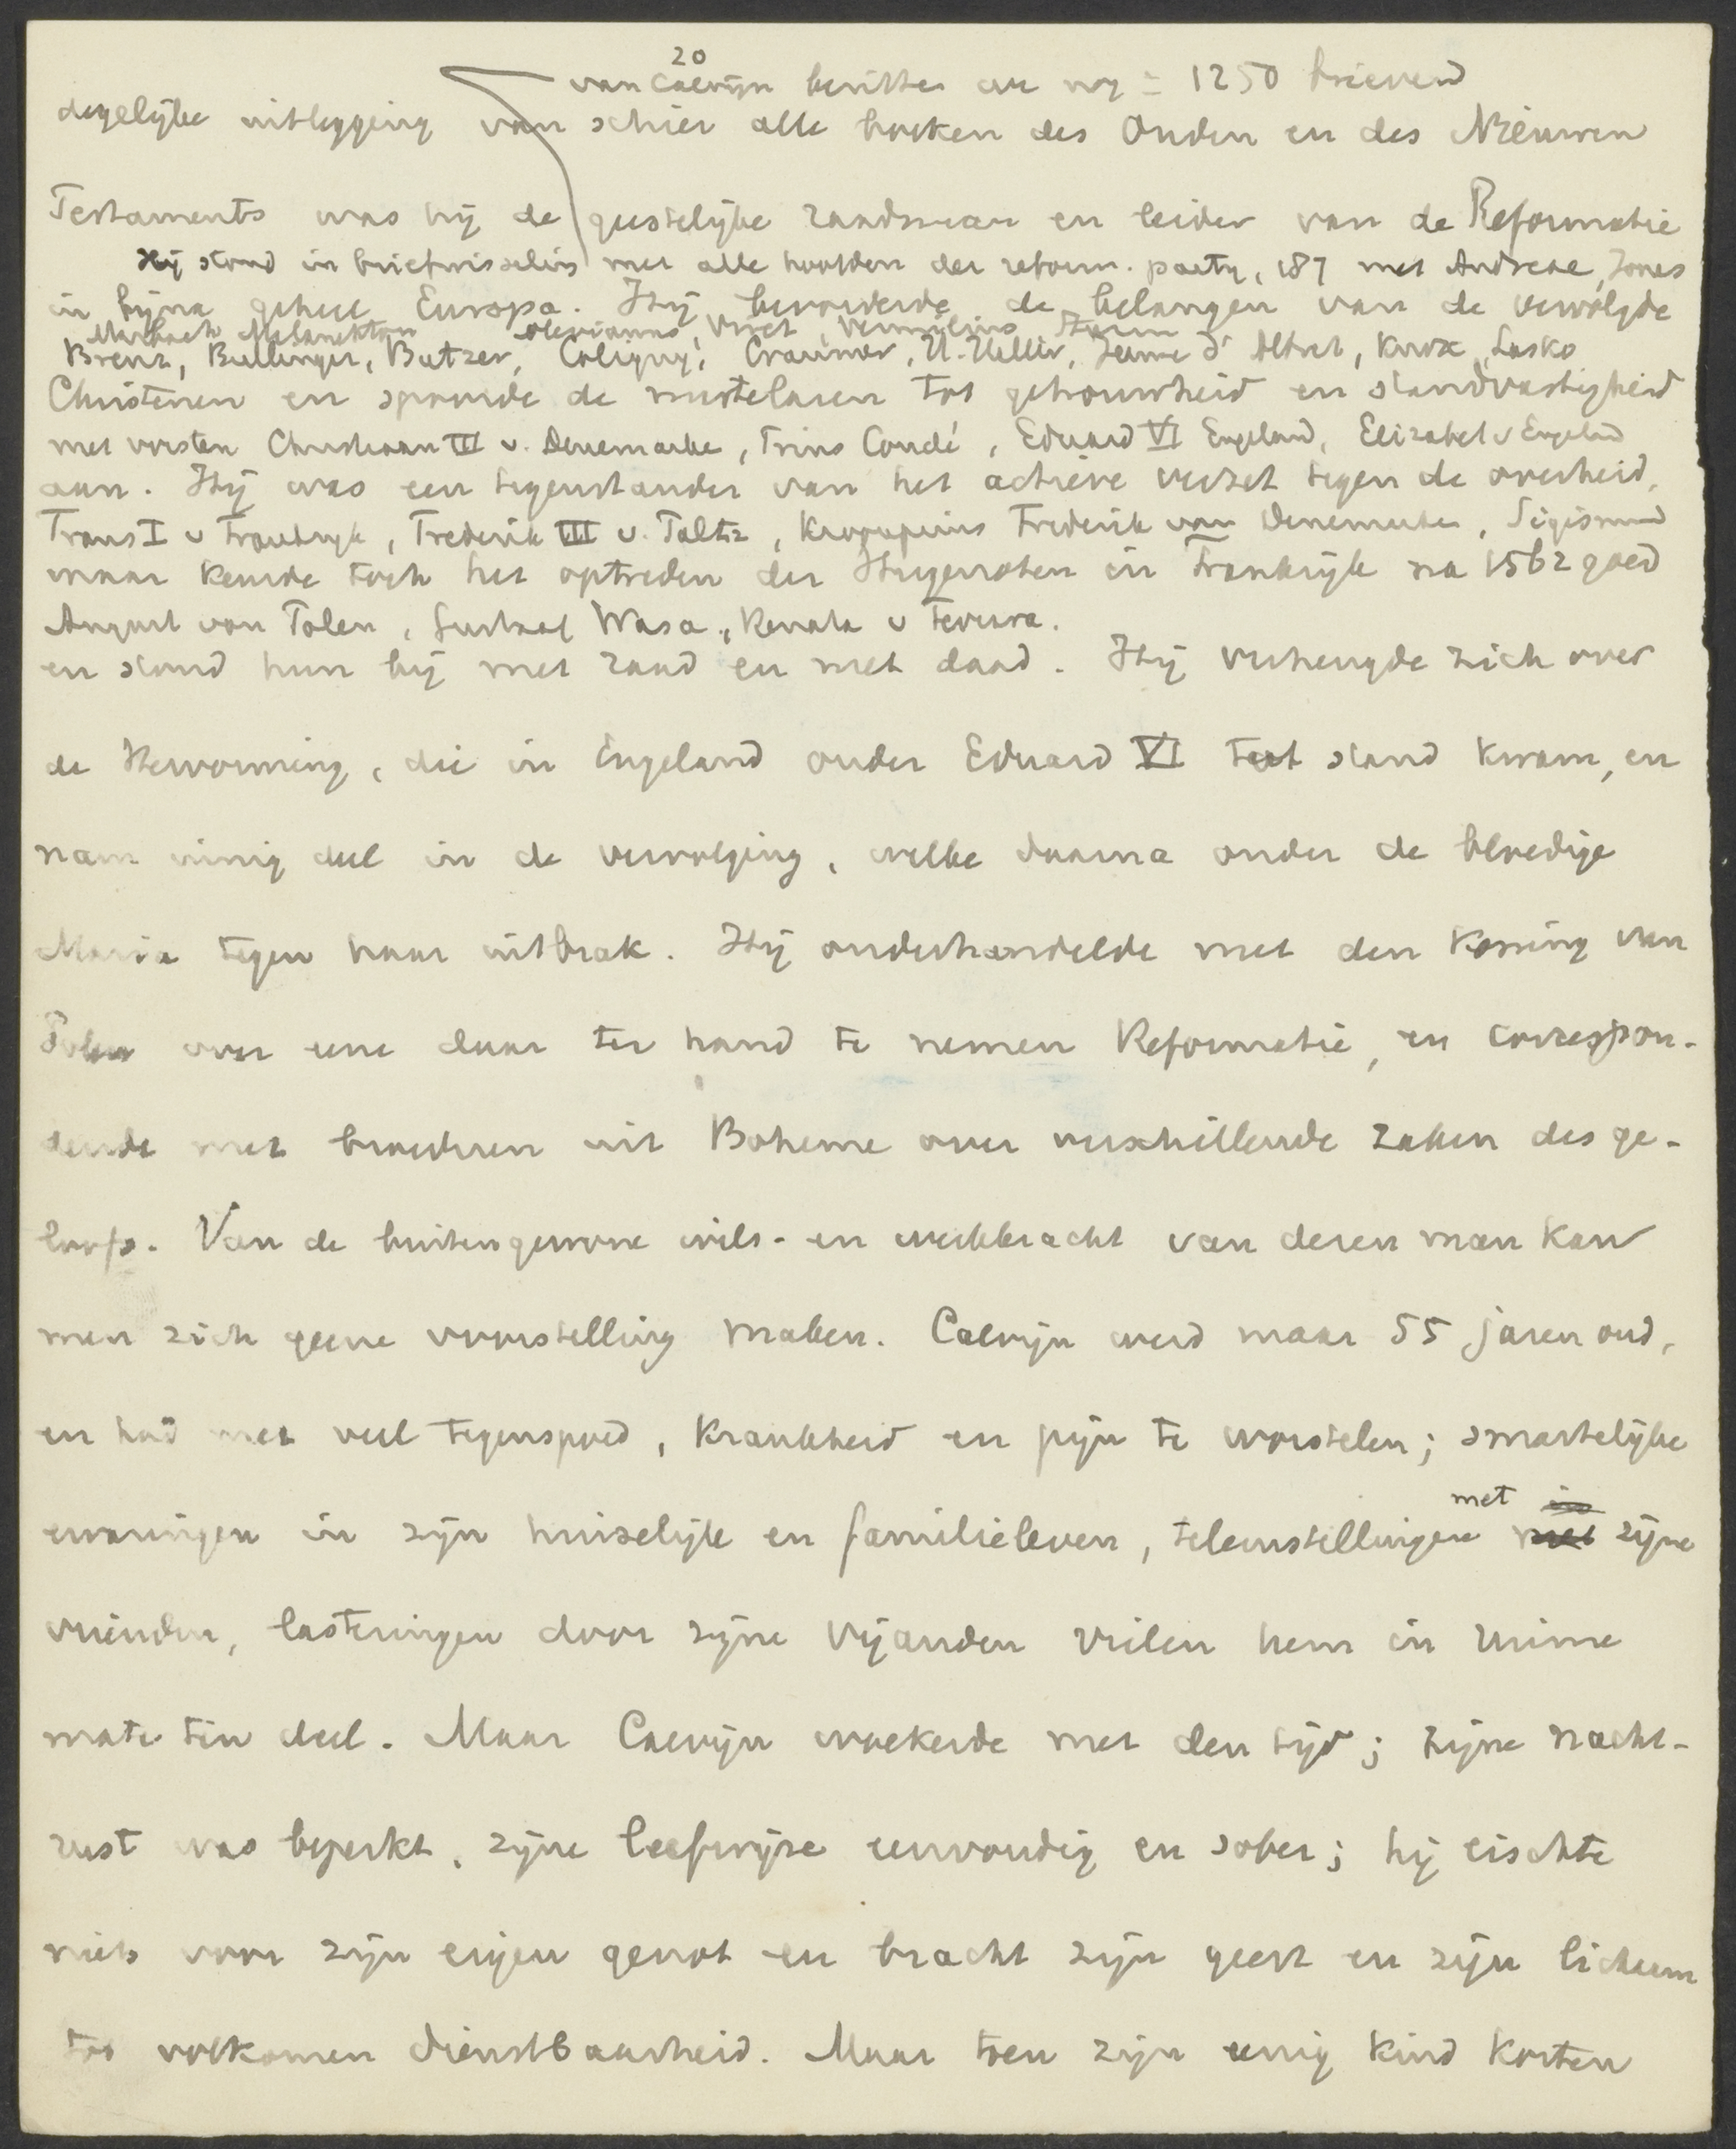 20
van Calvijn bezitten we nog ± 1250 brieven
degelijke uitlegging van schier alle boeken des Ouden en des Nieuwen
Testaments was hij de geestelijke raadsman en leider van de Reformatie
Hij stond in briefwisseling met alle hoofden der reform. party, 187 met Andreae, Jonas
in bijna geheel Europa. Hij bevorderde de belangen van de vervolgde
Marbach Melanchton Olevianus, Viret, Vermilius, Sturm
Brenz, Bullinger, Butzer, Coligny, Cranmer, Jeanne d'Albret, Knox, Lasko
Christenen en spoorde de martelaren tot getrouwheid en standvastigheid
met vorsten Christiaan III v. Denemarke, Prins Condé, Eduard VI Engeland, Elizabet v Engeland
aan. Hij was een tegenstander van het actieve verzet tegen de overheid,
Frans I v Frankryk, Frederik III v. Paltz, Kroonprins Frederik van Denemarken, Sigismund
maar keurde toch het optreden der Hugenoten in Frankrijk na 1562 goed
August von Polen, Gustaaf Wasa, Renata v Ferrara.
en stond hun bij met raad en met daad. Hij verheugde zich over
de Hervorming, die in Engeland onder Eduard VI tot stand kwam, en
nam innig deel in de vervolging, welke daarna onder de bloedige
Maria tegen haar uitbrak. Hij onderhandelde met den Koning van
Polen over eene daar ter hand te nemen Reformatie, en correspon-
deerde met broederen uit Boheme over verschillende zaken des ge-
loofs. Van de buitengewone wils- en werkkracht van dezen man kan
men zich geene voorstelling maken. Calvijn werd maar 55 jaren oud,
en had met veel tegenspoed, krankheid en pijn te worstelen; smartelijke
ervaringen in zijn huiselijk en familieleven, teleurstellingen met zijne
vrienden, lasteringen door zijne vijanden vielen hem in ruime
mate ten deel. Maar Calvijn woekerde met den tijd; zijne nacht-
rust was beperkt, zijne leefwijze eenvoudig en sober; hij eischte
niets voor zijn eigen genot en bracht zijn geest en zijn lichaam
tot volkomen dienstbaarheid. Maar toen zijn eenig kind korten